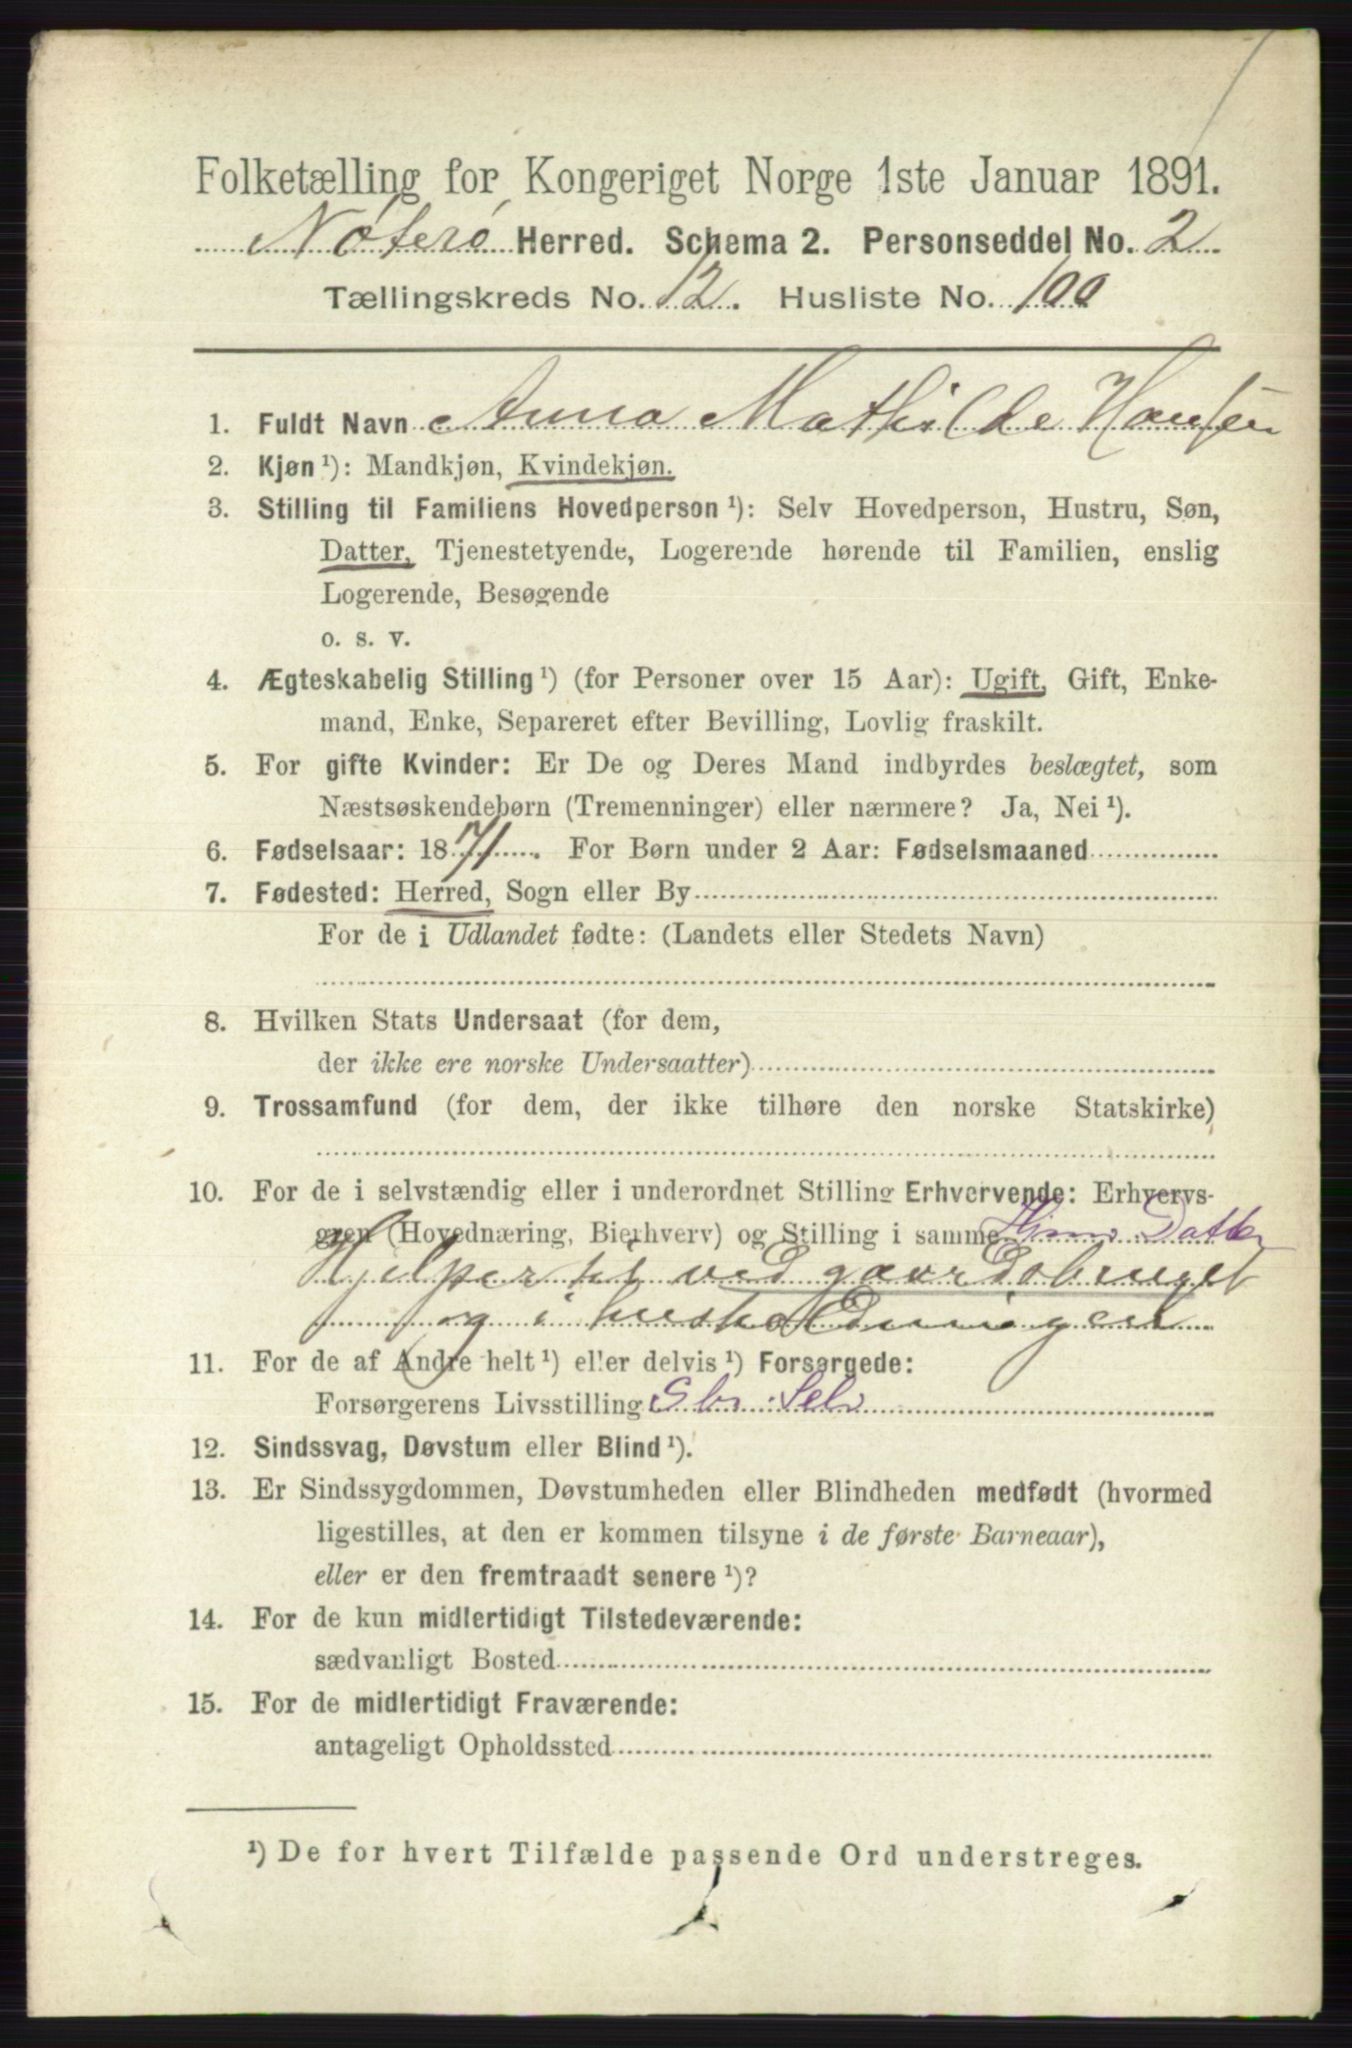 Folketælling for Kongeriget Norge 1ste Januar 1891.
Nøterø Herred. Schema 2. Personseddel No. 2
Tællingskreds No. 12. Husliste No. 100
1. Fuldt Navn Anna Mathilde Hansen
2. Kjøn ¹): Mandkjøn, Kvindekjøn.
3. Stilling til Familiens Hovedperson ¹): Selv Hovedperson, Hustru, Søn,
Datter, Tjenestetyende, Logerende hørende til Familien, enslig
Logerende, Besøgende
o. s. v.
4. Ægteskabelig Stilling ¹) (for Personer over 15 Aar): Ugift, Gift, Enke-
mand, Enke, Separeret efter Bevilling, Lovlig fraskilt.
5. For gifte Kvinder: Er De og Deres Mand indbyrdes beslægtet, som
Næstsøskendebørn (Tremenninger) eller nærmere? Ja, Nei ¹).
6. Fødselsaar: 1871. For Børn under 2 Aar: Fødselsmaaned
7. Fødested: Herred, Sogn eller By
For de i Udlandet fødte: (Landets eller Stedets Navn)
8. Hvilken Stats Undersaat (for dem,
der ikke ere norske Undersaatter)
9. Trossamfund (for dem, der ikke tilhøre den norske Statskirke)
10. For de i selvstændig eller i underordnet Stilling Erhvervende: Erhvervs-
gren (Hovednæring, Bierhverv) og Stilling i samme Datter
Hjelper til ved gaardsbruget
og i husholdningen
11. For de af Andre helt ¹) eller delvis ¹) Forsørgede:
Forsørgerens Livsstilling Gbr. Selv
12. Sindssvag, Døvstum eller Blind ¹).
13. Er Sindssygdommen, Døvstumheden eller Blindheden medfødt (hvormed
ligestilles, at den er kommen tilsyne i de første Barneaar),
eller er den fremtraadt senere ¹)?
14. For de kun midlertidigt Tilstedeværende:
sædvanligt Bosted
15. For de midlertidigt Fraværende:
antageligt Opholdssted
¹) De for hvert Tilfælde passende Ord understreges.